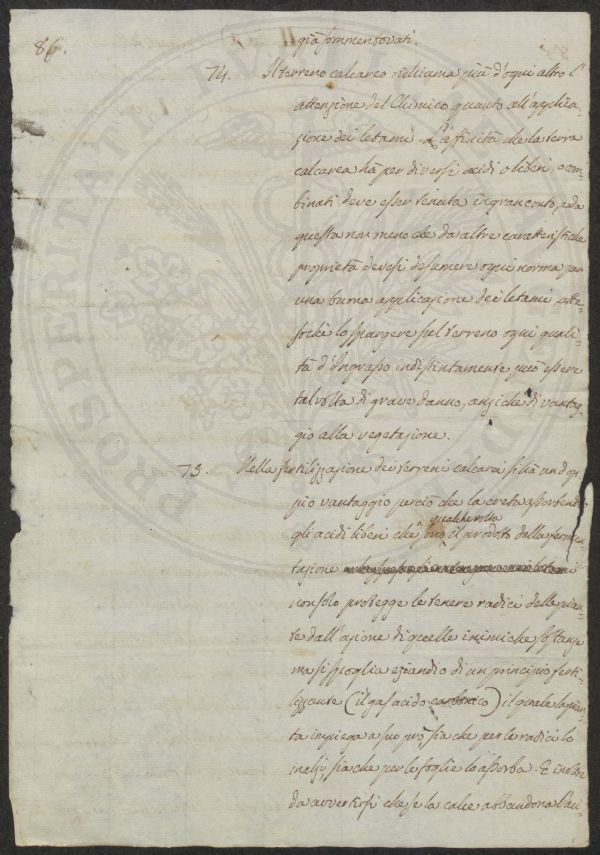 86.
già sommensovati.
74. Il terreno calcareo richiama più d'ogni altro l'
attenzione del Chimico quanto all'applica-
zione dei letami. L'affinità che la terra
calcarea ha per diversi acidi o liberi o com-
binati deve esser tenuta in gran conto, e da
questa non meno che da altre caratteristiche
proprietà devesi desumere ogni norma per
una buona applicazione dei letami atte-
sochè lo spargere sul terreno ogni quali-
tà d'Ingrasso indistintamente può essere
talvolta di grave danno, anzi che di vantag-
gio alla vegetazione.
75. Nella fertilizzazione dei terreni calcarei si ha un dop-
pio vantaggio perciò che la creta assorbendo
gli acidi liberi che qualche volta sono il prodotto della fermen-
tazione
non solo protegge le tenere radici delle pian-
te dall'azione di quelle inimiche sostanze
ma si spoglia eziandio di un principio ferti-
lizzante (il gas acido carbonico) il quale la pian-
ta impiega a suo prò, sia che per le radici lo
inalzi, sia che per le foglie lo assorba. È inoltre
da avvertirsi che se la calce abbandona l'au-